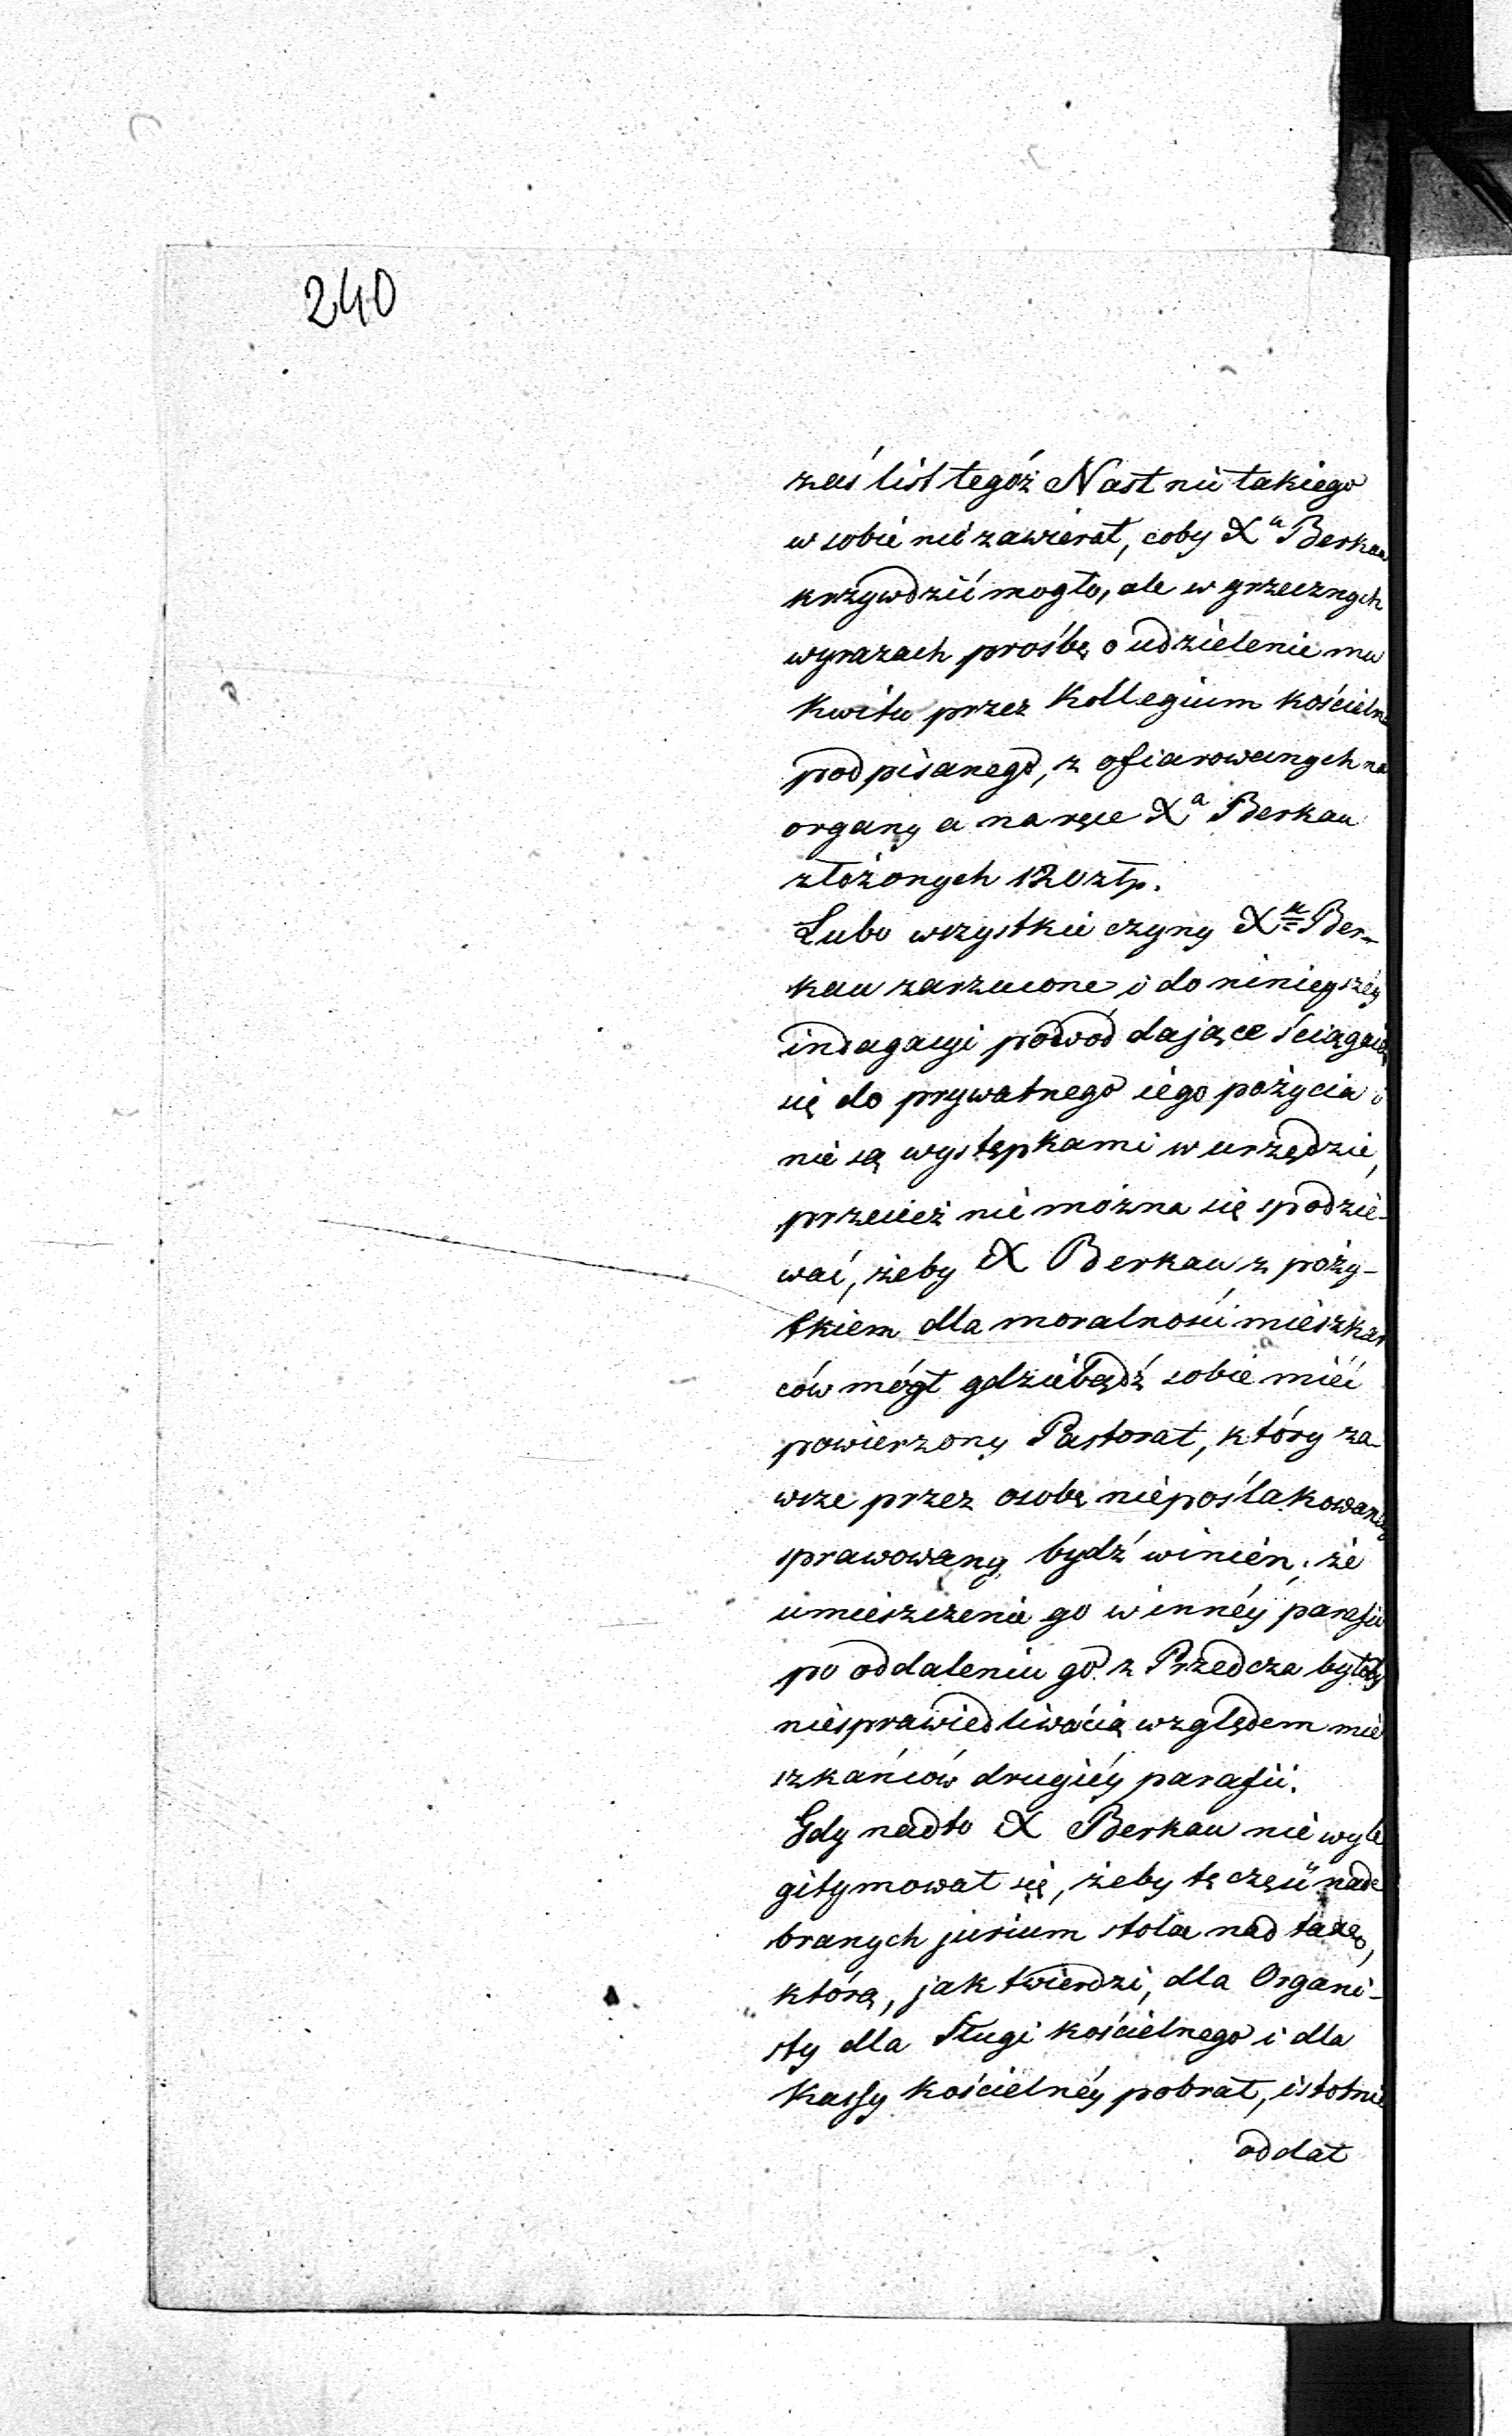 240
zaś list tegóż Nast nic takiego
w sobie nie zawierał, coby Xa Berkau
krzywdzić mogło, ale w grzecznych
wyrazach prośbę o udzielenie mu
kwitu przez Kollegium kościelne
podpisanego, z ofiarowanych na
organy a na ręce Xa Berkau
złożonych 120 złp.
Lubo wszystkie czyny Xu Ber-
kau zarzucone i do niniejszéy
indagacyi powód dające ściągaią
się do prywatnego iego pożycia i
nie są występkami w urzędzie,
przecież nie można się spodzie-
wać, żeby X Berkau z poży-
tkiem dla moralności mieszkań
ców mógł gdziebądź sobie mieć
powierzony Pastorat, który za-
wsze przez osobę nieposzlakowaną
sprawowany bydź winien; że
umieszczenie go w innéy parafii
po oddaleniu go z Przedcza byłoby
niesprawiedliwością względem mie
szkańców drugiéy parafii.
Gdy nadto X Berkau nie wyle
gitymował się, żeby tę część nade
branych jurium stolae nad taxę,
którą, jak twierdzi, dla Organi-
sty dla Sługi kościelnego i dla
Kassy kościelnéy pobrał, istotnie
oddał